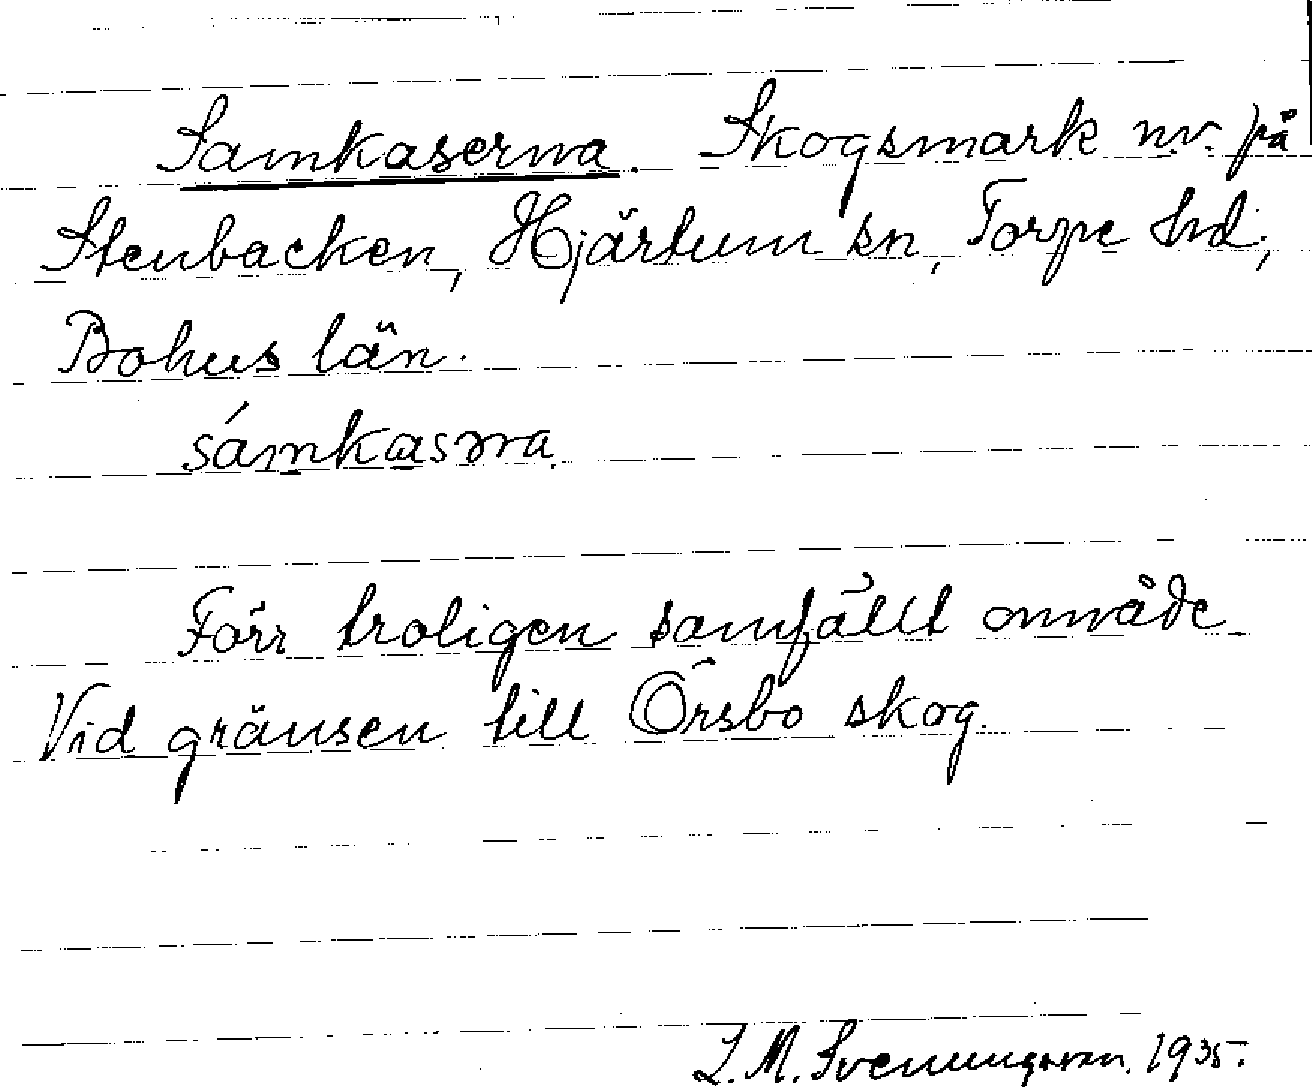 Samkaserna. Skogsmark nv. på
Stenbacken, Hjärtum sn, Torpe hd,
Bohus län.
sámkasɔrna.
Förr troligen samfällt område
Vid gränsen till Örsbo skog.
L. M. Svenungsson. 1935.